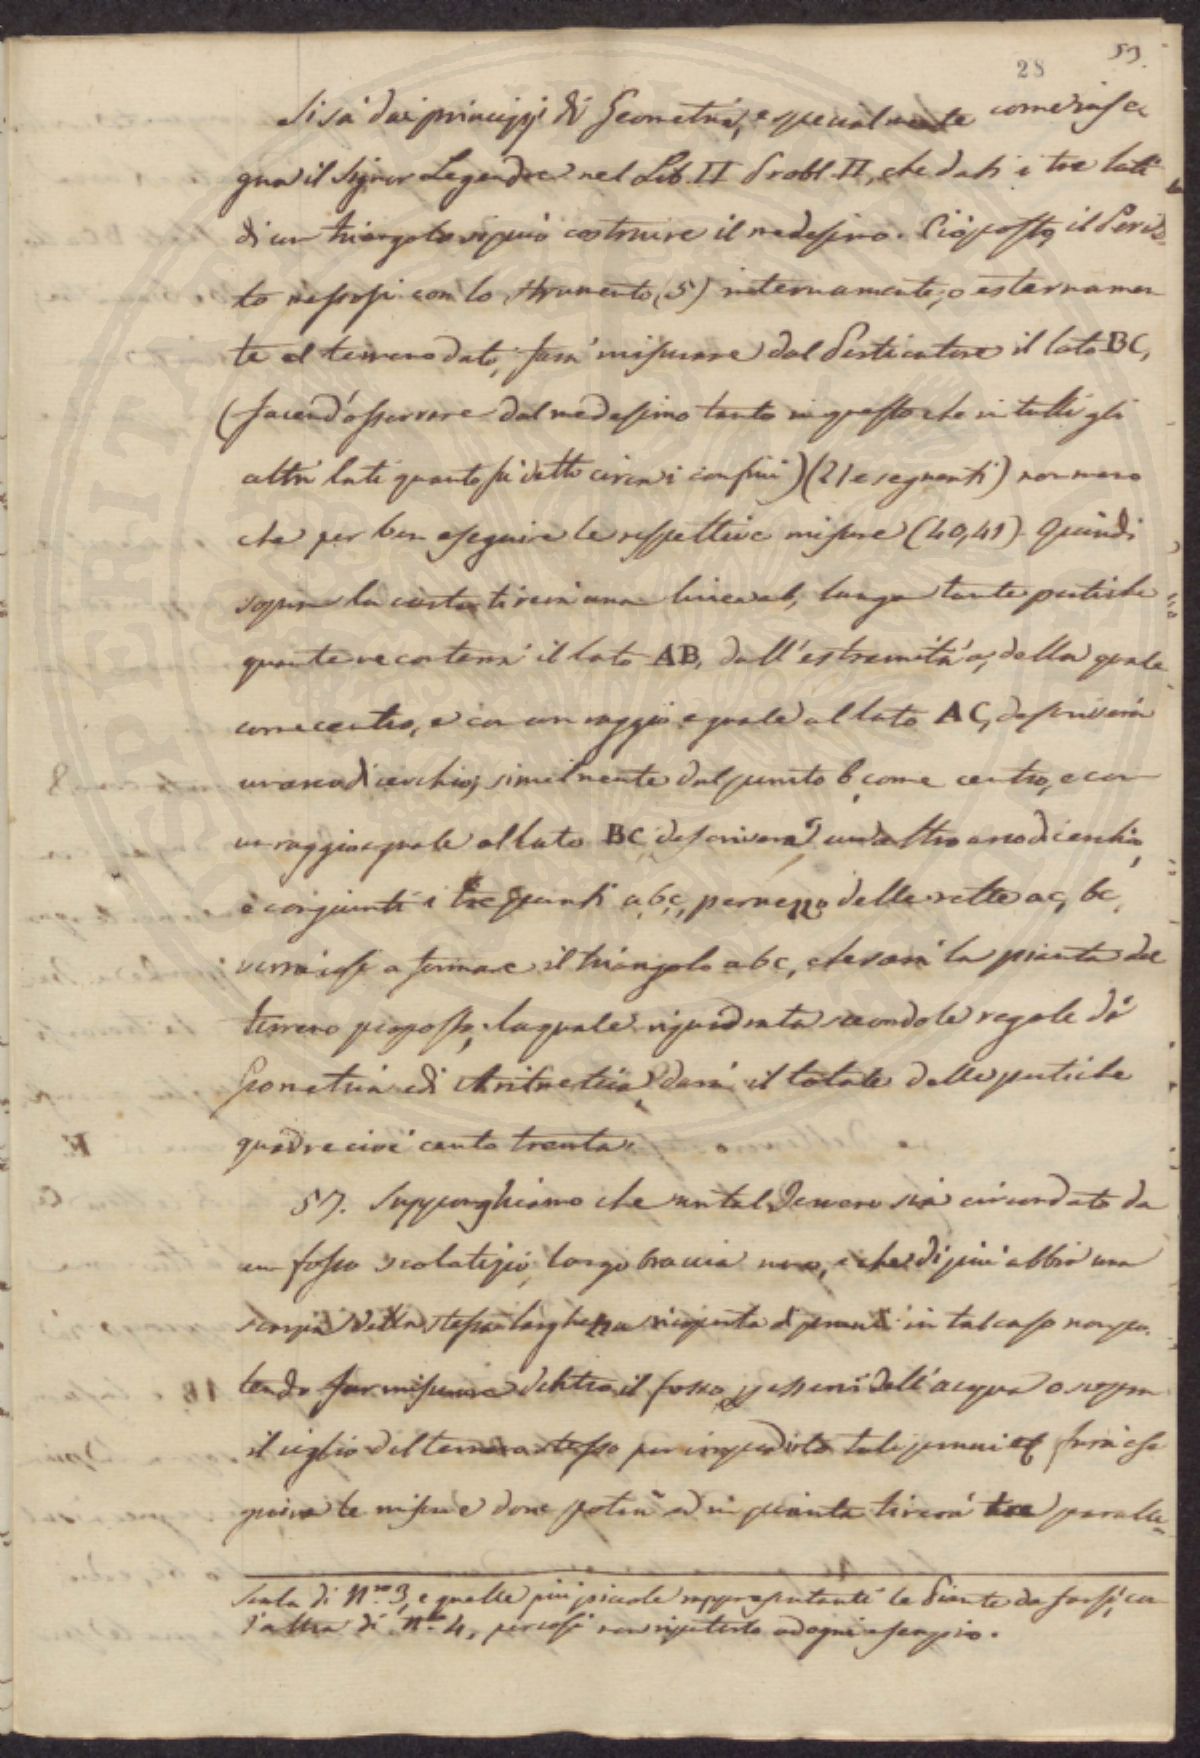 28 53.
Si sà dai principj di Geometria, e specialmente come inse
gna il Signor Legendre nel Lib. II Probl. II, che dati i tre lati
di un triangolo si può costruire il medesimo. Ciò posto, il Peri=
to messosi con lo strumento (5) internamente, o esternamen
te al terreno dato, farà misurare dal Perticatore il lato BC,
(facend'osservare dal medesimo tanto in questo che in tutti gli
altri lati quanto fu detto circa i confini) (21 e seguenti) non meno
che per ben eseguire le respettive misure (40, 41). Quindi
sopra la carta tirerà una linea ab, lunga tante pertiche
quante ne conterrà il lato AB, dall'estremità a, della quale
come centro, e con un raggio eguale al lato AC, descriverà
un arco di cerchio; similmente dal punto b, come centro, e con
un raggio eguale al lato BC descriverà un altro arco di cerchio,
e congiunti i tre punti a, b, c, per mezzo delle rette ac, bc,
verrassi a formare il triangolo abc, che sarà la pianta del
terreno proposto, la quale riquadrata secondo le regole di
Geometria e di Aritmetica darà il totale delle pertiche
quadre cioè cento trenta.
57. Supponghiamo che un tal Terreno sia circondato da
un fosso scolatizio, largo braccia uno, e che di più abbia una
scarpa della stessa larghezza ricoperta di pruni: in tal caso non po
tendo far misurare dentro il fosso per esservi dell'acqua o sopra
il ciglio del terreno stesso per impedirlo tali pruni farà ese
guire le misure dove potrà ed in pianta tirerà tre paralle=
Scala di N.ro 3, e quelle più piccole rappresentanti le Piante da farsi, con
l'altra di N.ro 4, per così non ripeterlo ad ogni esempio.